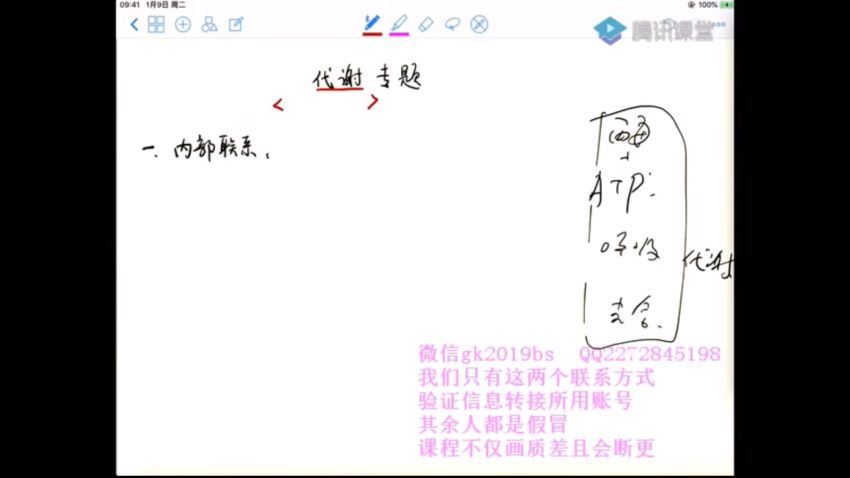 09:41 1月9日 周二
100%
腾讯课堂
代谢专题
< >
一、内部联系、
酶
ATP:
呼吸
代谢
光合.
微信gk2019bs QQ2272845198
我们只有这两个联系方式
验证信息转接所用账号
其余人都是假冒
课程不仅画质差且会断更